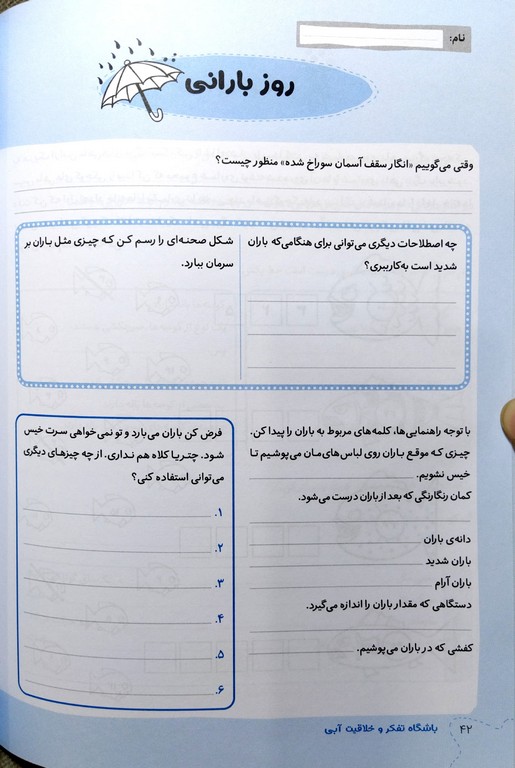 نام:
روز بارانی
وقتی می‌گوییم «انگار سقف آسمان سوراخ شده» منظور چیست؟
چه اصطلاحات دیگری می‌توانی برای هنگامی‌که باران
شدید است به‌کارببری؟
شکل صحنه‌ای را رسم کن که چیزی مثل باران بر
سرمان ببارد.
با توجه راهنمایی‌ها، کلمه‌های مربوط به باران را پیدا کن.
چیزی که موقع باران روی لباس‌های‌مان می‌پوشیم تا
خیس نشویم.
کمان رنگارنگی که بعد از باران درست می‌شود.
دانه‌ی باران
باران شدید
باران آرام
دستگاهی که مقدار باران را اندازه می‌گیرد.
کفشی که در باران می‌پوشیم.
فرض کن باران می‌بارد و تو نمی‌خواهی سرت خیس
شود. چتر یا کلاه هم نداری. از چه چیزهای دیگری
می‌توانی استفاده کنی؟
۱.
۲.
۳.
۴.
۵.
۶.
باشگاه تفکر و خلاقیت آبی
۴۲